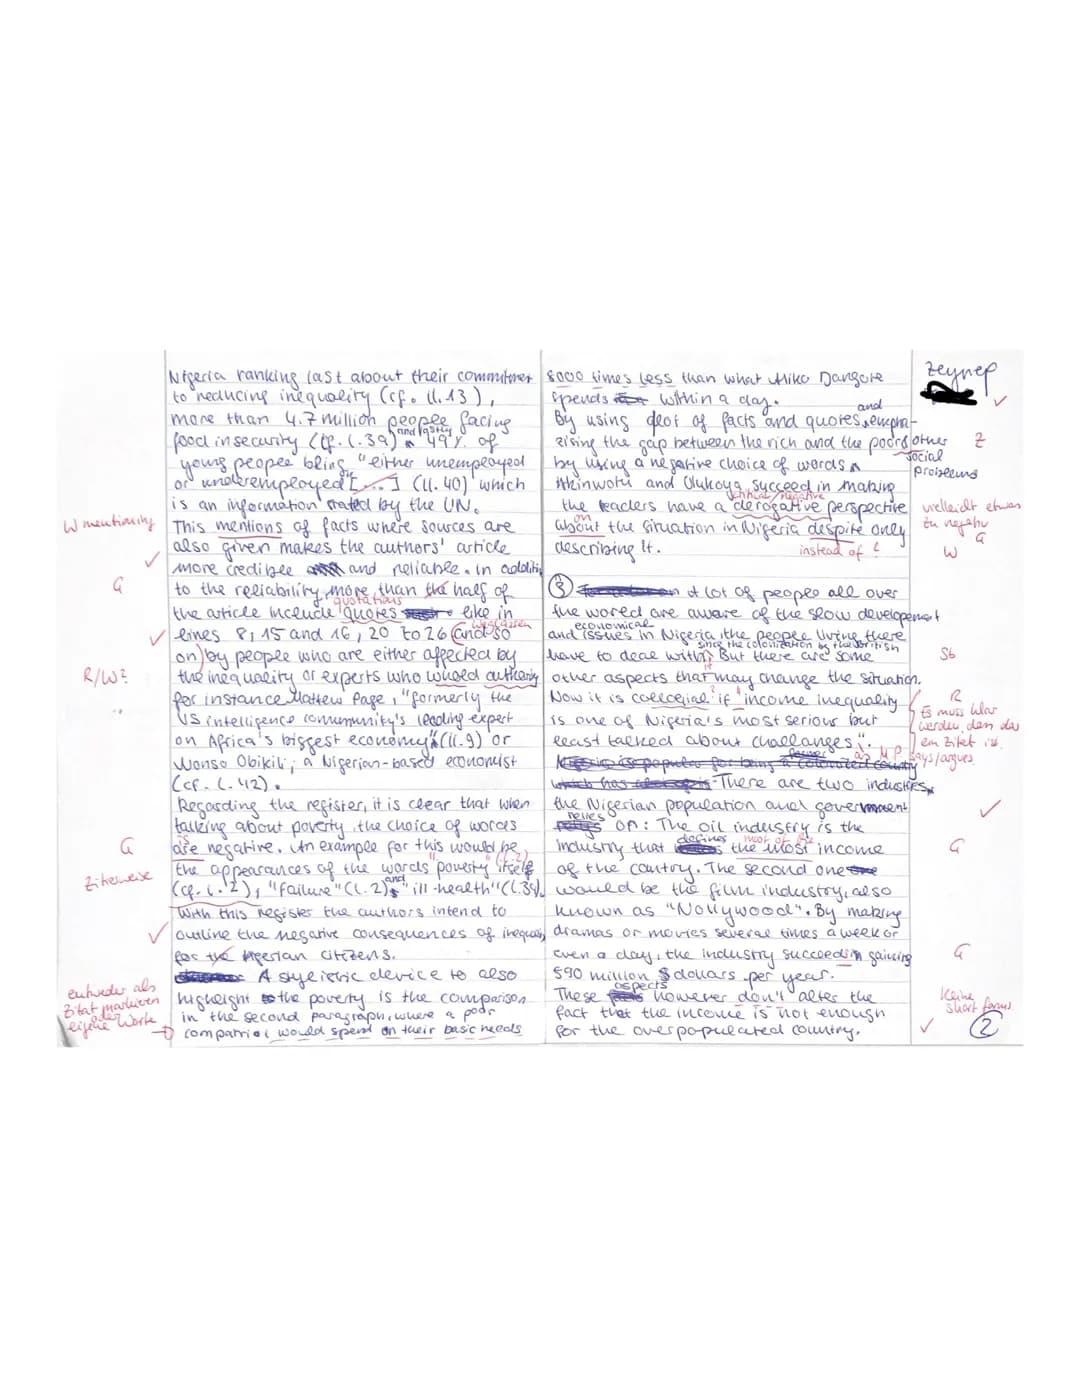 Nigeria ranking last about their commitment
to reducing inequality (cf. ll. 13),
more than 4.7 million people facing
food insecurity (cf. l. 39), and lastly 49% of
young people bling "either unemployed
or underemployed" [...] (ll. 40) which
is an information stated by the UN.
W mentioning
This mentions of facts where sources are
also given makes the authors' article
more credible and reliable. In addition
G
to the reliability, more than the half of
the article include quotes like in
quotations
lines 8, 15 and 16, 20 to 26 (and so
weglassen
on) by people who are either affected by
R/W?
the inequality or experts who
for instance Mattew Page, "formerly the
US intelligence community's leading expert
on Africa's biggest economy" (ll. 9) or
Nonso Obikili, a Nigerian-based economist
(cf. l. 42).
Regarding the register, it is clear that when
talking about poverty, the choice of words
G
is
are negative. An example for this would be
the appearances of the words "poverty" itself
Zitierweise
(cf. l. 2), "failure" (l. 2), and "ill-health" (l. 35).
With this register the authors intend to
outline the negative consequences of inequality
for the Nigerian citizens.
A stylistic device to also
entweder als
Zitat markieren
oder
eigene Worte
highlight the poverty is the comparison
in the second paragraph, where a poor
compatriot would spend on their basic needs
8000 times less than what Aliko Dangote
spends within a day.
By using alot of facts and quotes, and empha-
sizing the gap between the rich and the poor & other
social
problems
Z
by using a negative choice of words,
Akinwotu and Olukoya succeed in making
critical/negative
the readers have a derogative perspective
vielleicht etwas
zu negativ
G
on
about the situation in Nigeria despite only
W
describing it.
instead of ?
③ A lot of people all over
the world are aware of the slow development
economical
and issues in Nigeria, the people living there
since the colonization by the british
have to deal with. But there are some
Sb
other aspects that may change the situation.
Now it is if "income inequality
R
Es muss klar
werden, dass das
ein Zitat ist.
is one of Nigeria's most serious but
least talked about challanges".
as MP says/argues.
There are two industries,
the Nigerian population and government
relies on: The oil industry is the
industry that defines the most income
most of the
G
of the country. The second one
would be the film industry, also
known as "Nollywood". By making
dramas or movies several times a week or
even a day, the industry succeeds in gaining
G
590 million $ dollars per year.
These aspects however don't alter the
keine
short forms
fact that the income is not enough
for the overpopulated country.
zeynep
②